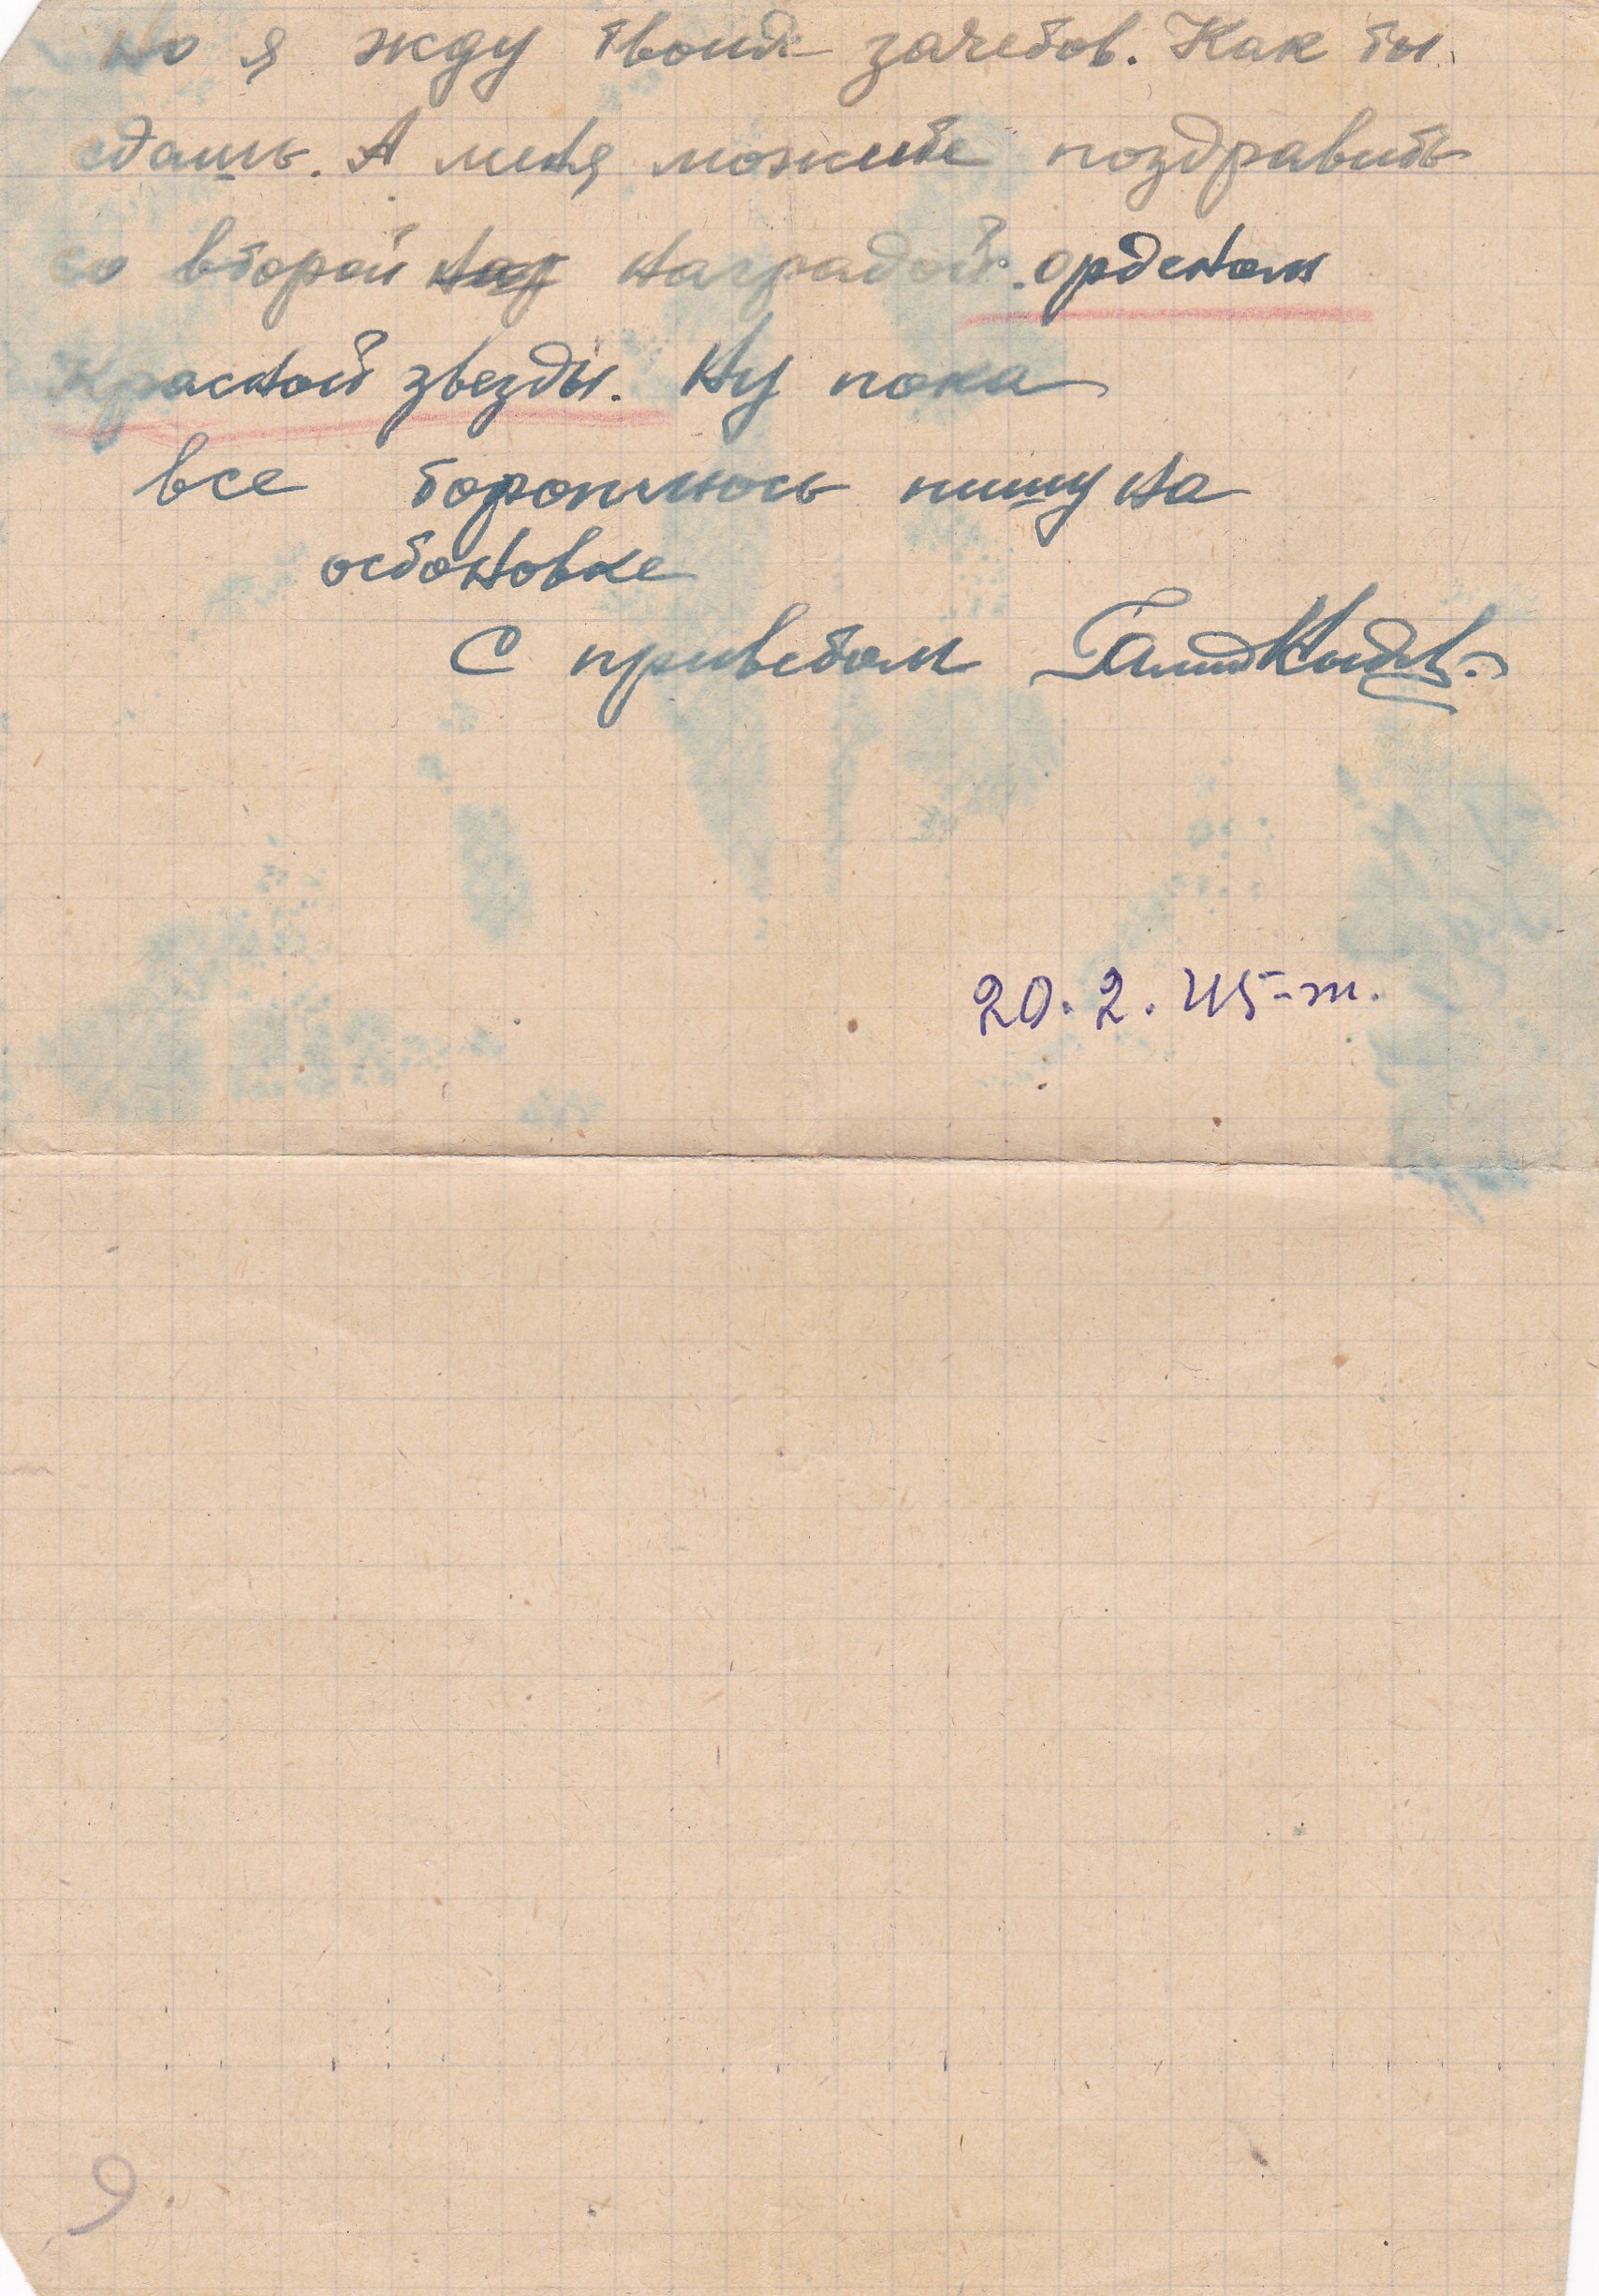 но я жду твоих зачетов. Как ты
сдашь. А меня можите поздравить
со второй наг наградой. орденом
Красной звезды. Ну пока
все тороплюсь пишу на
остановке
С приветом
20. 2. 45-т.
9